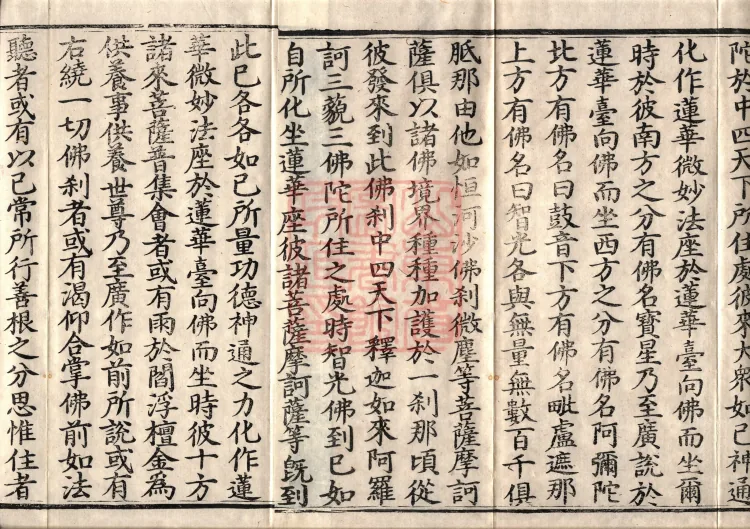 陀於中四天下所住處彼來大衆如己神通
化作蓮華微妙法座於蓮華臺向佛而坐爾
時於彼南方之分有佛名寶星乃至廣説於
蓮華臺向佛而坐西方之分有佛名阿彌陀
北方有佛名曰鼓音下方有佛名毗盧遮那
上方有佛名曰智光各與無量無數百千俱
胝那由他如恒河沙佛刹微塵等菩薩摩訶
薩俱以諸佛境界種種加護於一刹那頃從
彼發來到此佛刹中四天下釋迦如來阿羅
訶三藐三佛陀所住之處時智光佛到已如
自所化坐蓮華座彼諸菩薩摩訶薩等旣到
此已各各如己所量功德神通之力化作蓮
華微妙法座於蓮華臺向佛而坐時彼十方
諸來菩薩普集會者或有雨於閻浮檀金為
供養事供養世尊乃至廣作如前所説或有
右繞一切佛刹者或有渴仰合掌佛前如法
聽者或有以已常所行善根之分思惟住者